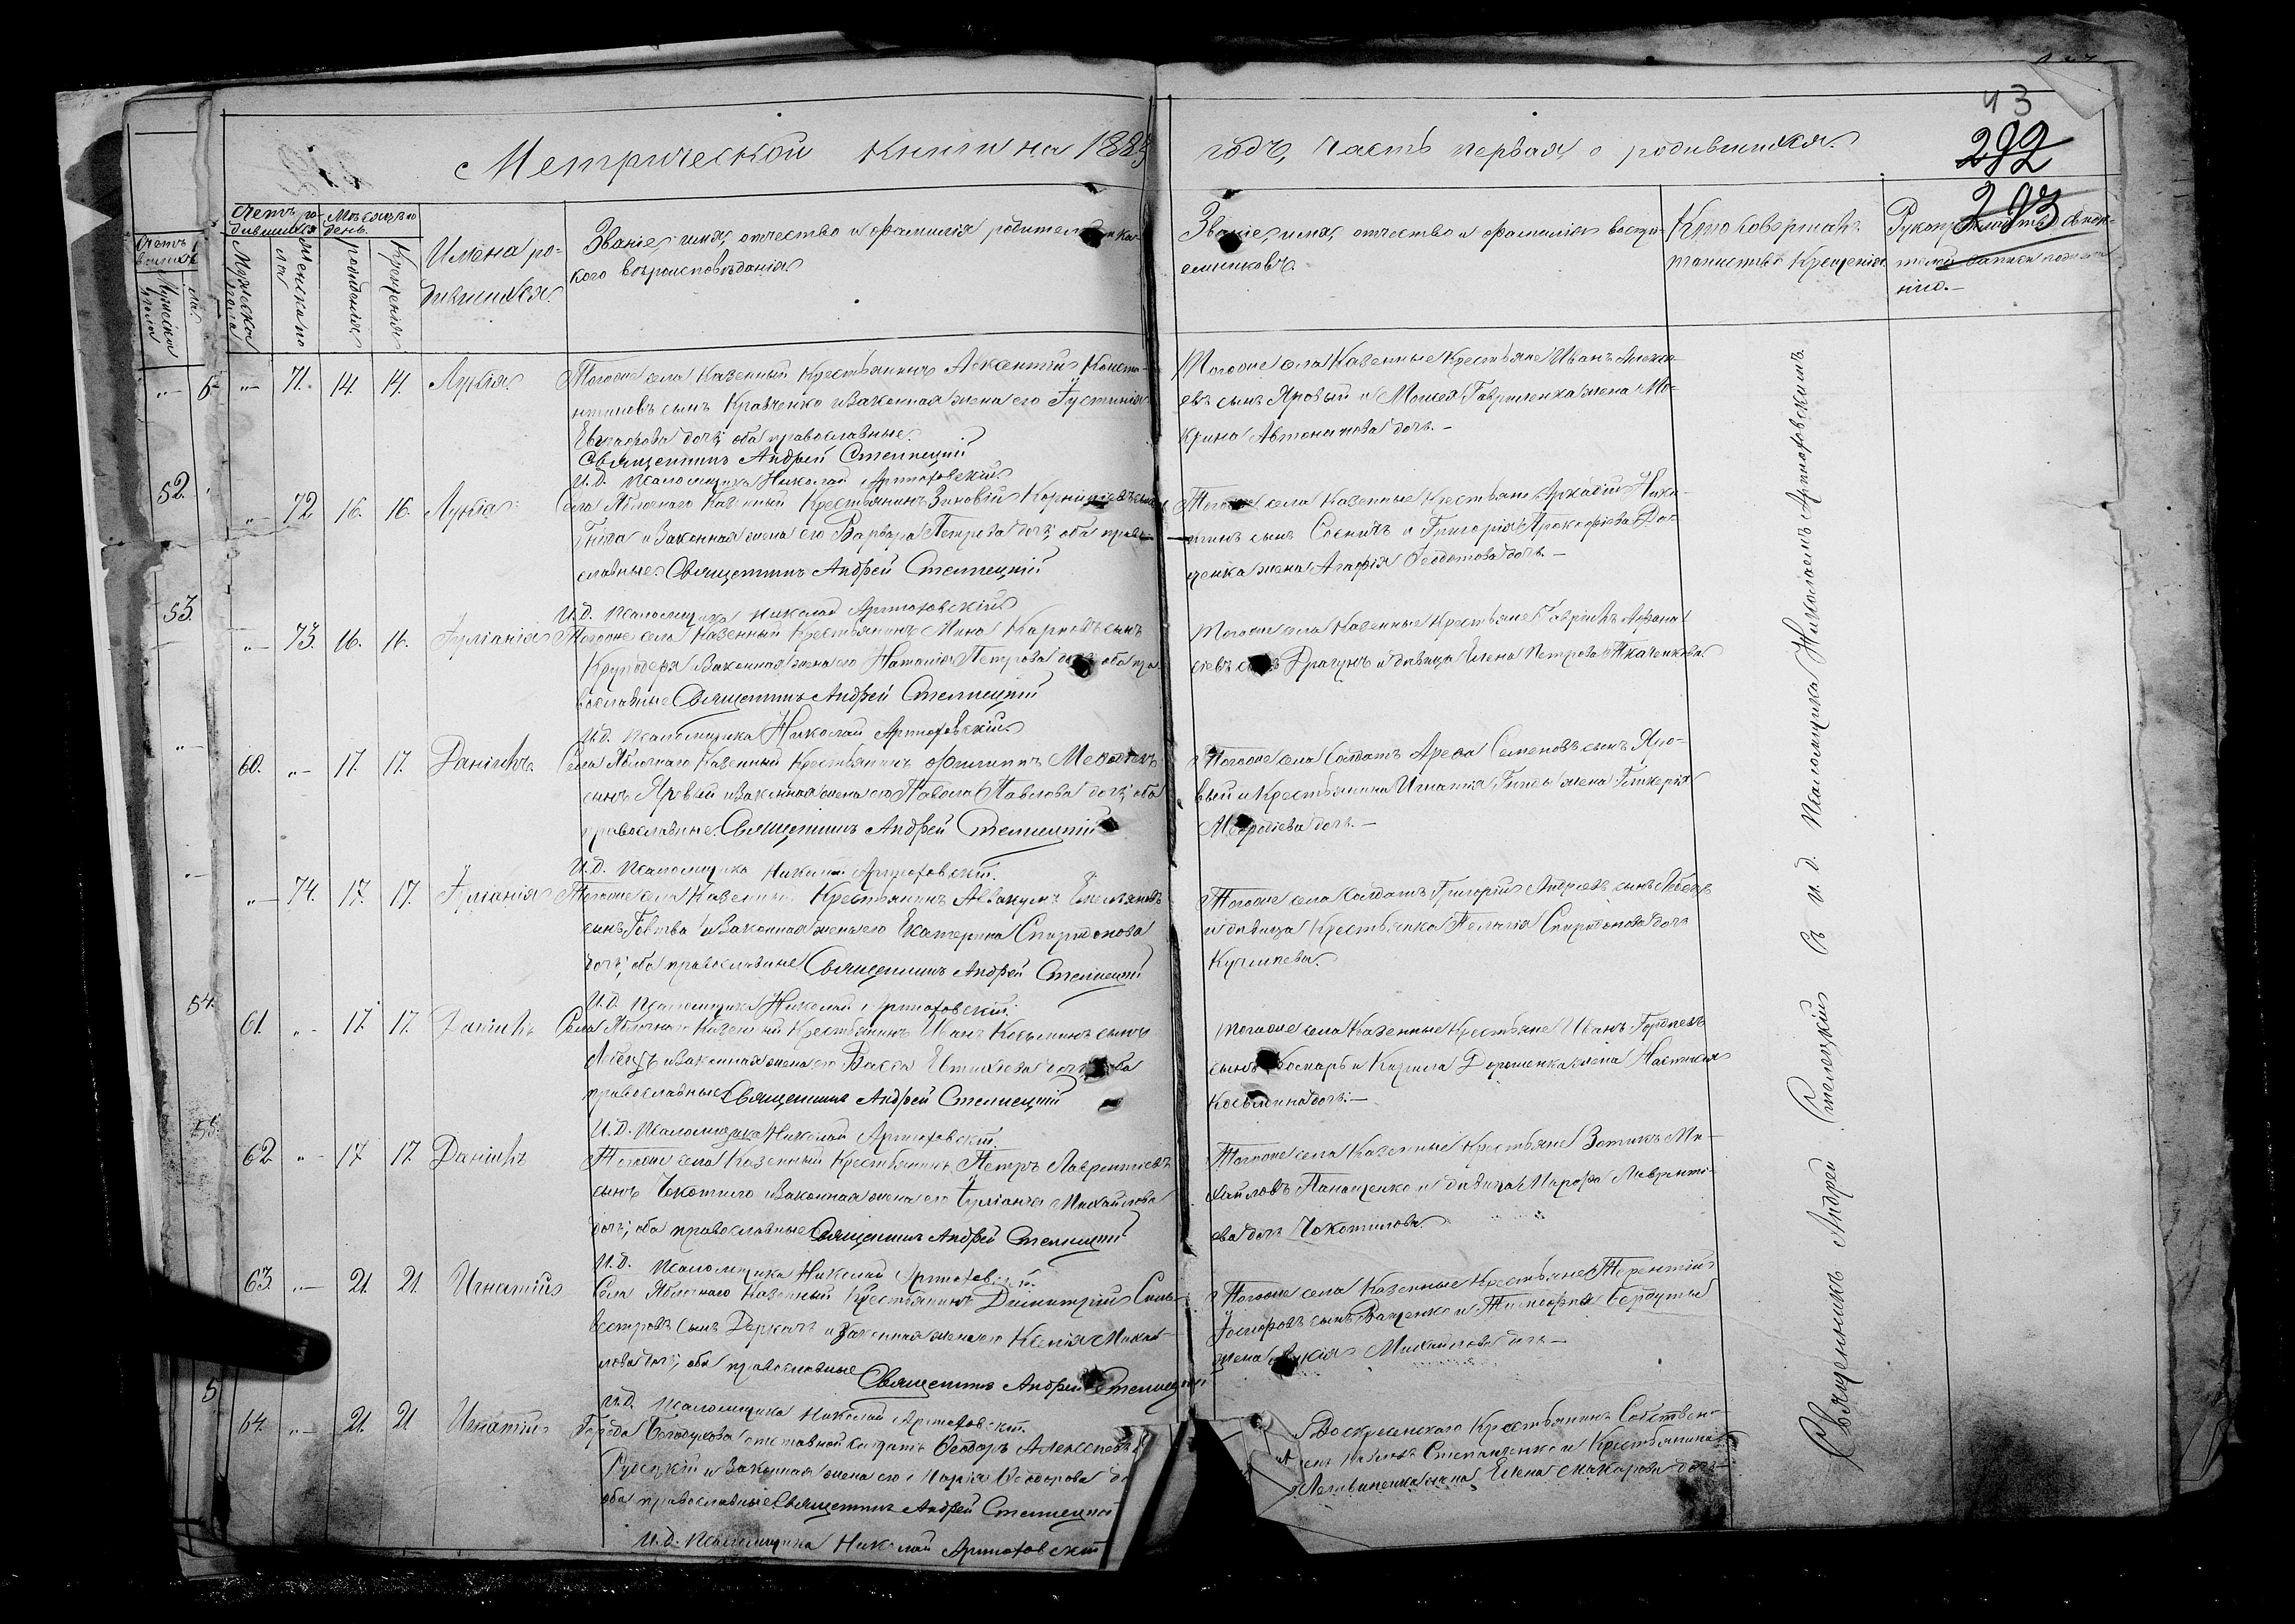 43
292
293
Метрической книги на 1883
годъ, часть первая о родившихся.
Счетъ ро-
дившихся
Мѣсяцъ и
день.
Мужеска
пола
Женскаго
пола
рожденія
Крещенія
Имена ро-
дившихся.
Званіе, имя, отчество и фамилія родителей и ка-
кого вѣроисповѣданія.
Званіе, имя, отчество и фамилія воспрі-
емниковъ.
Кто совершалъ
таинство Крещенія.
Рукоприкладство
нію.
„– 71. 14. 14. Лукія
Тогоже села Казенный Крестьянинъ Аксентій Конста-
нтиновъ сынъ Кравченко и Законная жена его Іустинія
дочь; оба православные.
Священникъ Андрей Стеллецкій
И.Д. Псаломщика Николай Артюховскій
Тогоже села Казенные Крестьяне Иванъ Алексѣ-
евъ сынъ Яровый и Моисея Гавриленка жена Ма-
крина Автономова дочь.–
52.
„– 72. 16. 16. Лукія
Села Яблочнаго Казенный Крестьянинъ Зиновій Корниліевъ сынъ
Гнида и Законная жена его Варвара Петрова дочь; оба право-
славные. Священникъ Андрей Стеллецкій
И.Д. Псаломщика Николай Артюховскій
Тогоже села Казенные Крестьяне Аркадій Ники-
тинъ сынъ и Григорія Прокофіева
жена Агафія Ѳедотова дочь.–
53.
„– 73. 16. 16. Іуліанія
Тогоже села Казенный Крестьянинъ Мина Карповъ сынъ
и Законная жена его Наталія Петрова дочь; оба пра-
вославные Священникъ Андрей Стеллецкій
И.Д. Псаломщика Николай Артюховскій
Тогоже села Казенные Крестьяне Гавріилъ Афана-
сіевъ сынъ Драгунъ и дѣвица Елена Петрова Ткаченкова.
60. „– 17. 17. Даніилъ
Села Яблочнаго Казенный Крестьянинъ Филиппъ Меѳодіевъ
сынъ Яровый и Законная жена его Павла Павлова дочь; оба
православные. Священникъ Андрей Стеллецкій
И.Д. Псаломщика Николай Артюховскій
Тогоже села Солдатъ Арефа Семеновъ сынъ Яро-
вый и Крестьянина Игнатія Гниды жена Гликерія
Меѳодіева дочь.–
„– 74. 17. 17. Іуліанія
Тогоже села Казенный Крестьянинъ Аввакумъ Емельяновъ
сынъ Говтва и Законная жена его Екатерина Спиридонова
дочь; оба православные Священникъ Андрей Стеллецкій
И.Д. Псаломщика Николай Артюховскій
Тогоже села Солдатъ Григорій Андреевъ сынъ
и дѣвица Крестьянка Пелагія Спиридонова дочь
54.
61. „– 17. 17. Даніилъ
Села Яблочнаго Казенный Крестьянинъ Иванъ Косьминъ сынъ
и Законная жена его Васса дочь; оба
православные Священникъ Андрей Стеллецкій
И.Д. Псаломщика Николай Артюховскій
Тогоже села Казенные Крестьяне Иванъ Гордеевъ
сынъ и Кирила Дорошенка жена Настасія
Косьмина дочь.–
62. „– 17. 17. Даніилъ
Тогоже села Казенный Крестьянинъ Петръ Лаврентіевъ
сынъ Чокотило и Законная жена его Іуліанія Михайлова
дочь; оба православные Священникъ Андрей Стеллецкій
И.Д. Псаломщика Николай Артюховскій
Тогоже села Казенные Крестьяне Зотикъ Ми-
хайловъ Панащенко и дѣвица Марфа Лавренті-
ева дочь Чокотилова.
63. „– 21. 21. Игнатій
Села Яблочнаго Казенный Крестьянинъ Димитрій Силь-
вестровъ сынъ Деркачъ и Законная жена его Ксенія Михай-
лова дочь; оба православные
Священникъ Андрей Стеллецкій
И.Д. Псаломщика Николай Артюховскій
Тогоже села Казенные Крестьяне Терентій
сынъ Ващенко и Тимофея
жена Михайлова дочь–
64. „– 21. 21. Игнатій
Города Богодухова отставной солдатъ Ѳеодоръ Алексѣевъ
и Законная жена его Марія Ѳеодорова
оба православные Священникъ Андрей Стеллецкій
И.Д. Псаломщика Николай Артюховскій
Воскресенскаго Крестьянинъ Собствен-
Степаненко и Крестьянина
Литвиненка жена Елена Макарова дочь–
Священникъ Андрей Стеллецкій съ и.д. Псаломщика Николаемъ Артюховскимъ